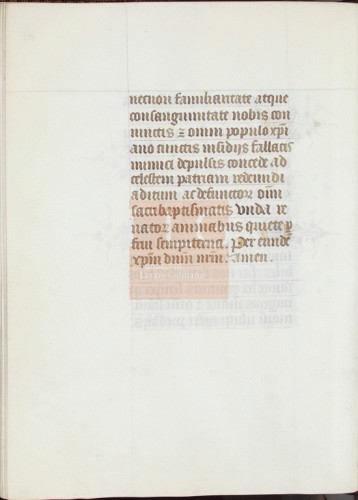 necnon familiaritate atque
consanguinitate nobis con
iunctis ⁊ omni populo xp̄i
ano cunctis insidijs fallacis
inimici depulsis concede ad
celestem patriam redeundi
aditum ac defunctor̄ oīm
sacri baptismatis unda re
nator̄ animabus quiete ꝑ
frui sempiterna. Per eundē
xp̄m dnm̄ nrm̄. Amen.